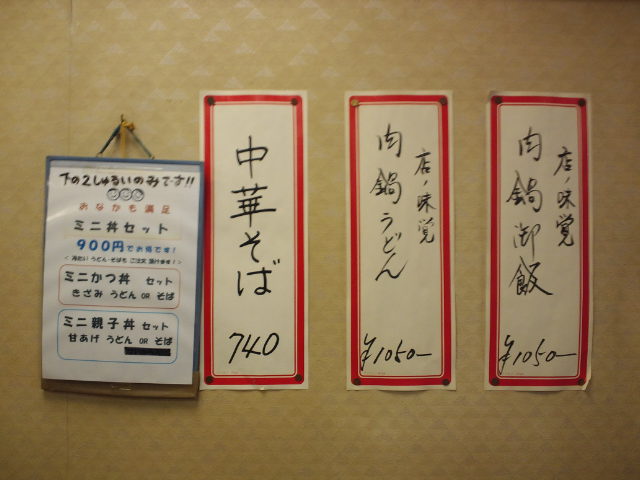 下の2しゅるいのみです!!
おなかも満足
ミニ丼セット
900円でお得です!
<冷たいうどん・そばもご注文頂けます!>
ミニかつ丼 セット
きざみ うどん OR そば
ミニ親子丼 セット
甘あげ うどん OR そば
中華そば
740
店ノ味覚
肉鍋うどん
¥1050-
店ノ味覚
肉鍋御飯
¥1050-